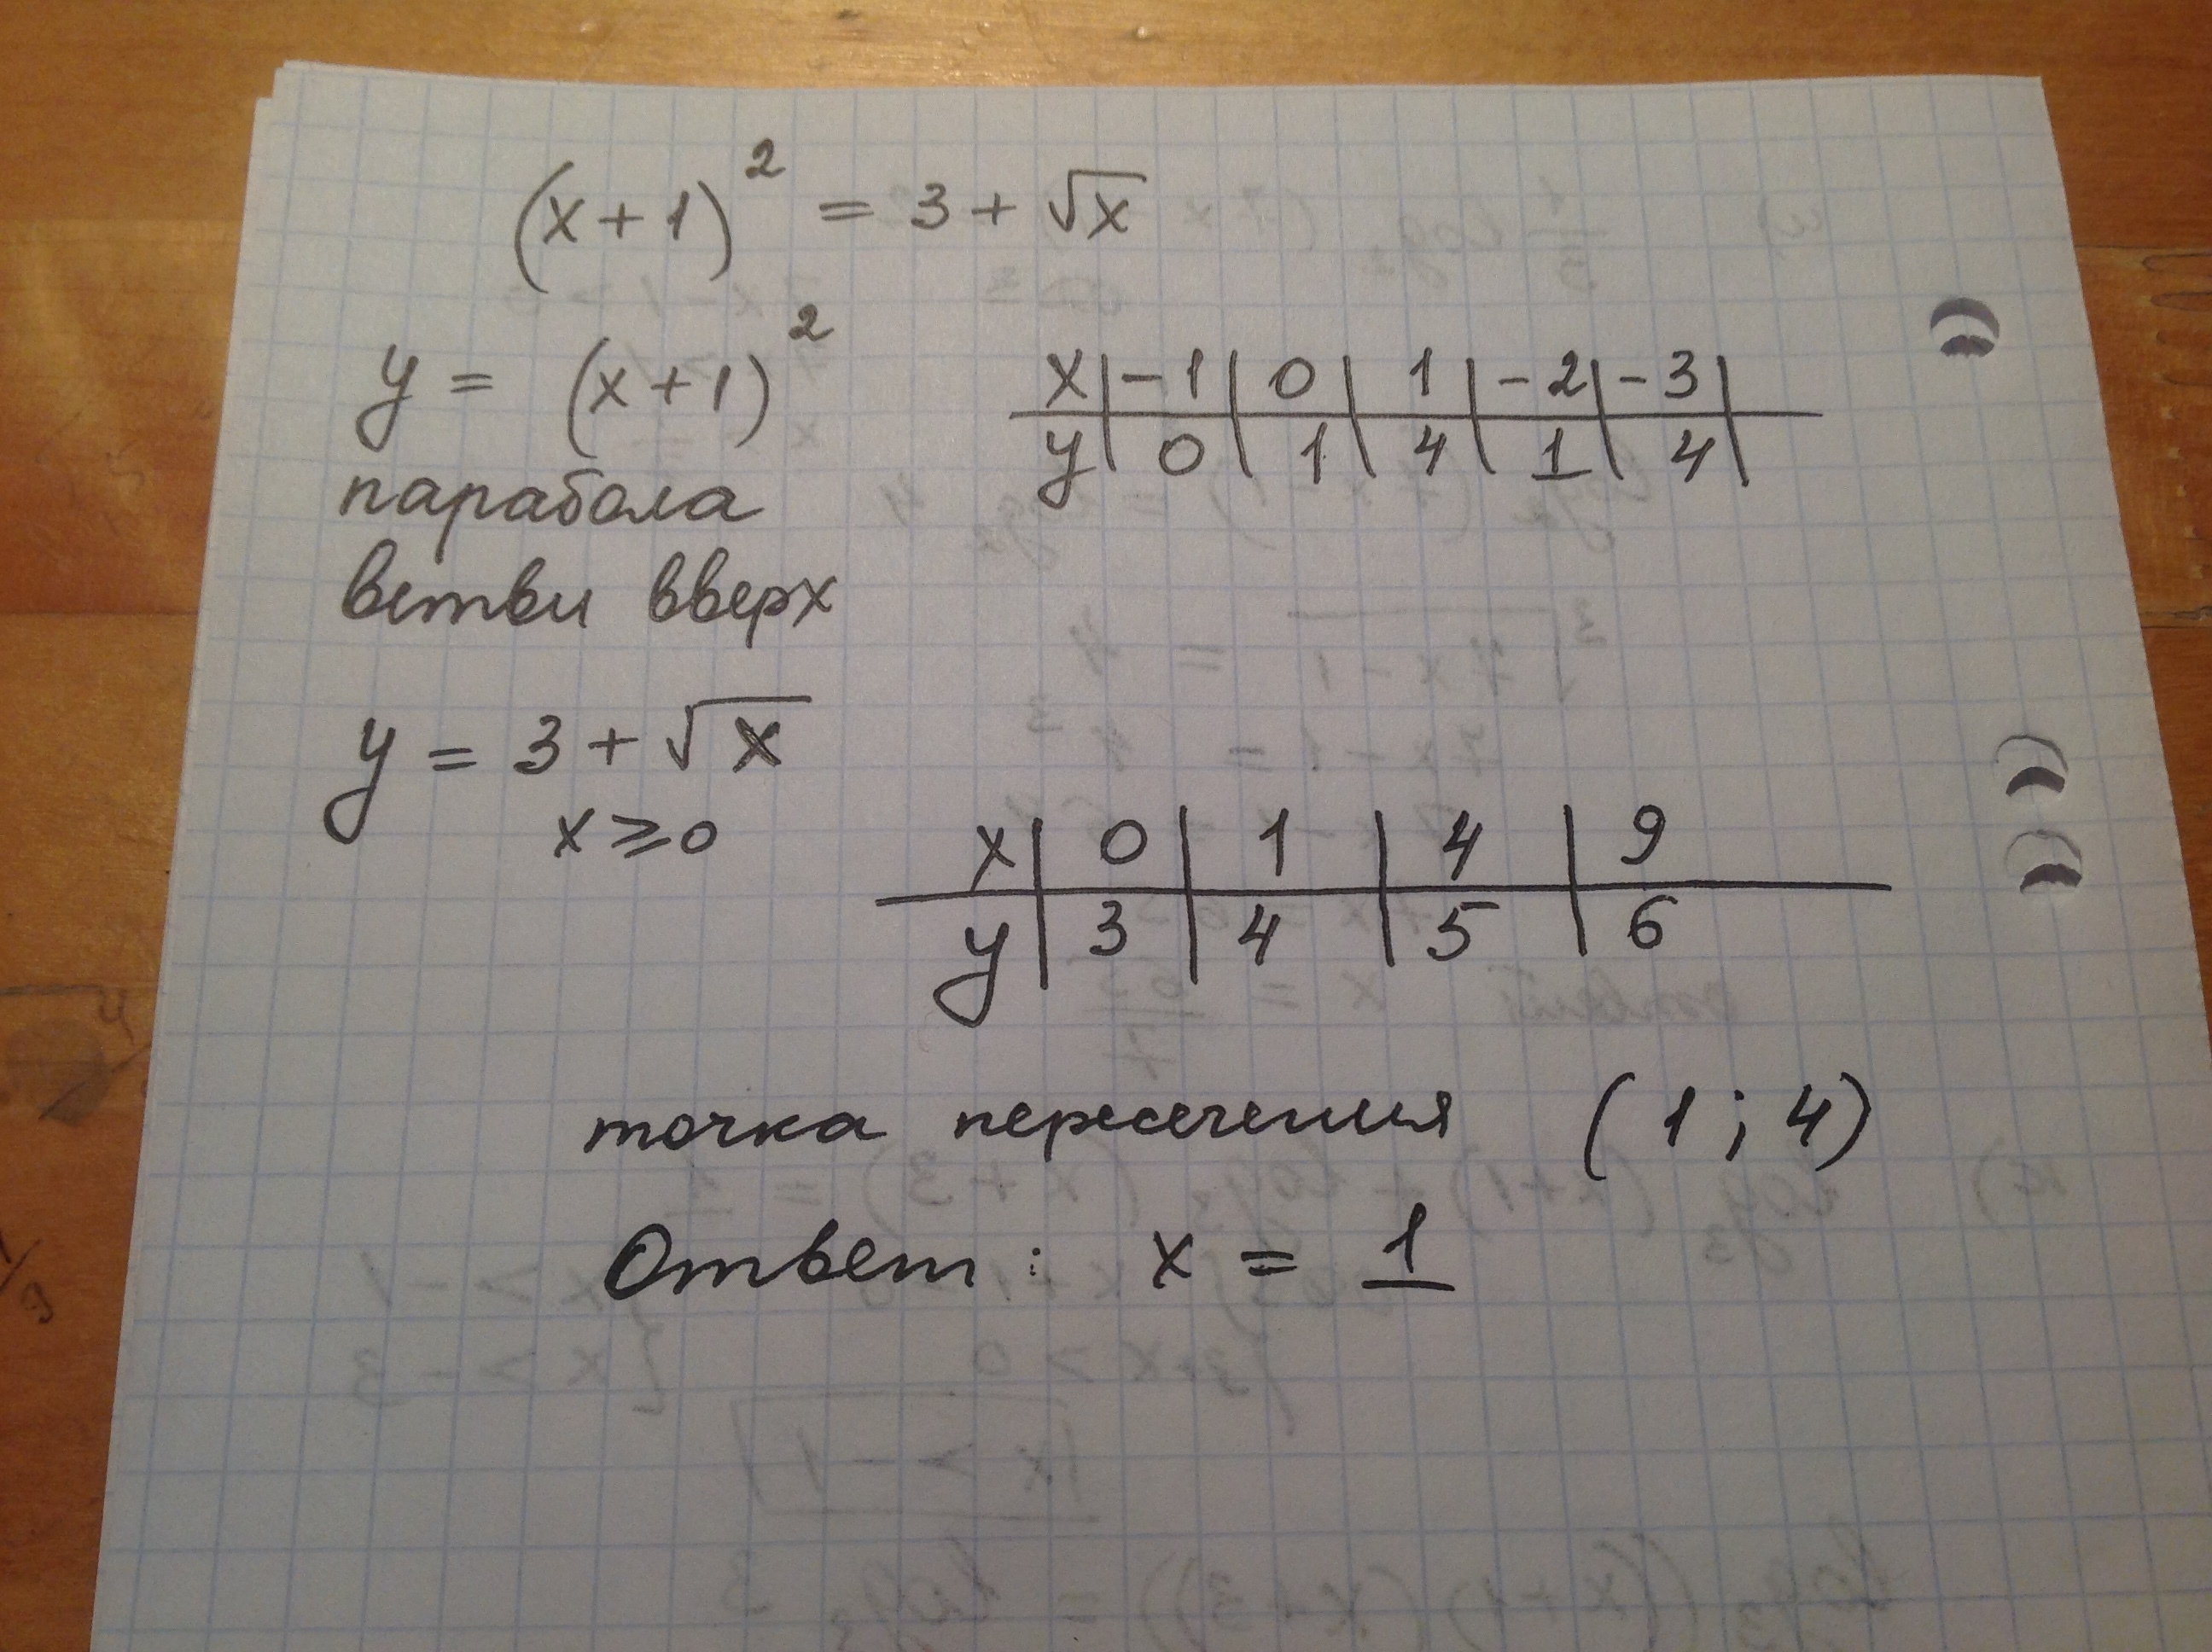 (x+1)² = 3 + √x
y = (x+1)²
x | -1 | 0 | 1 | -2 | -3 |
y | 0 | 1 | 4 | 1 | 4 |
парабола
ветви вверх
y = 3 + √x
x ⩾ 0
x | 0 | 1 | 4 | 9
y | 3 | 4 | 5 | 6
точка пересечения (1; 4)
Ответ: x = 1